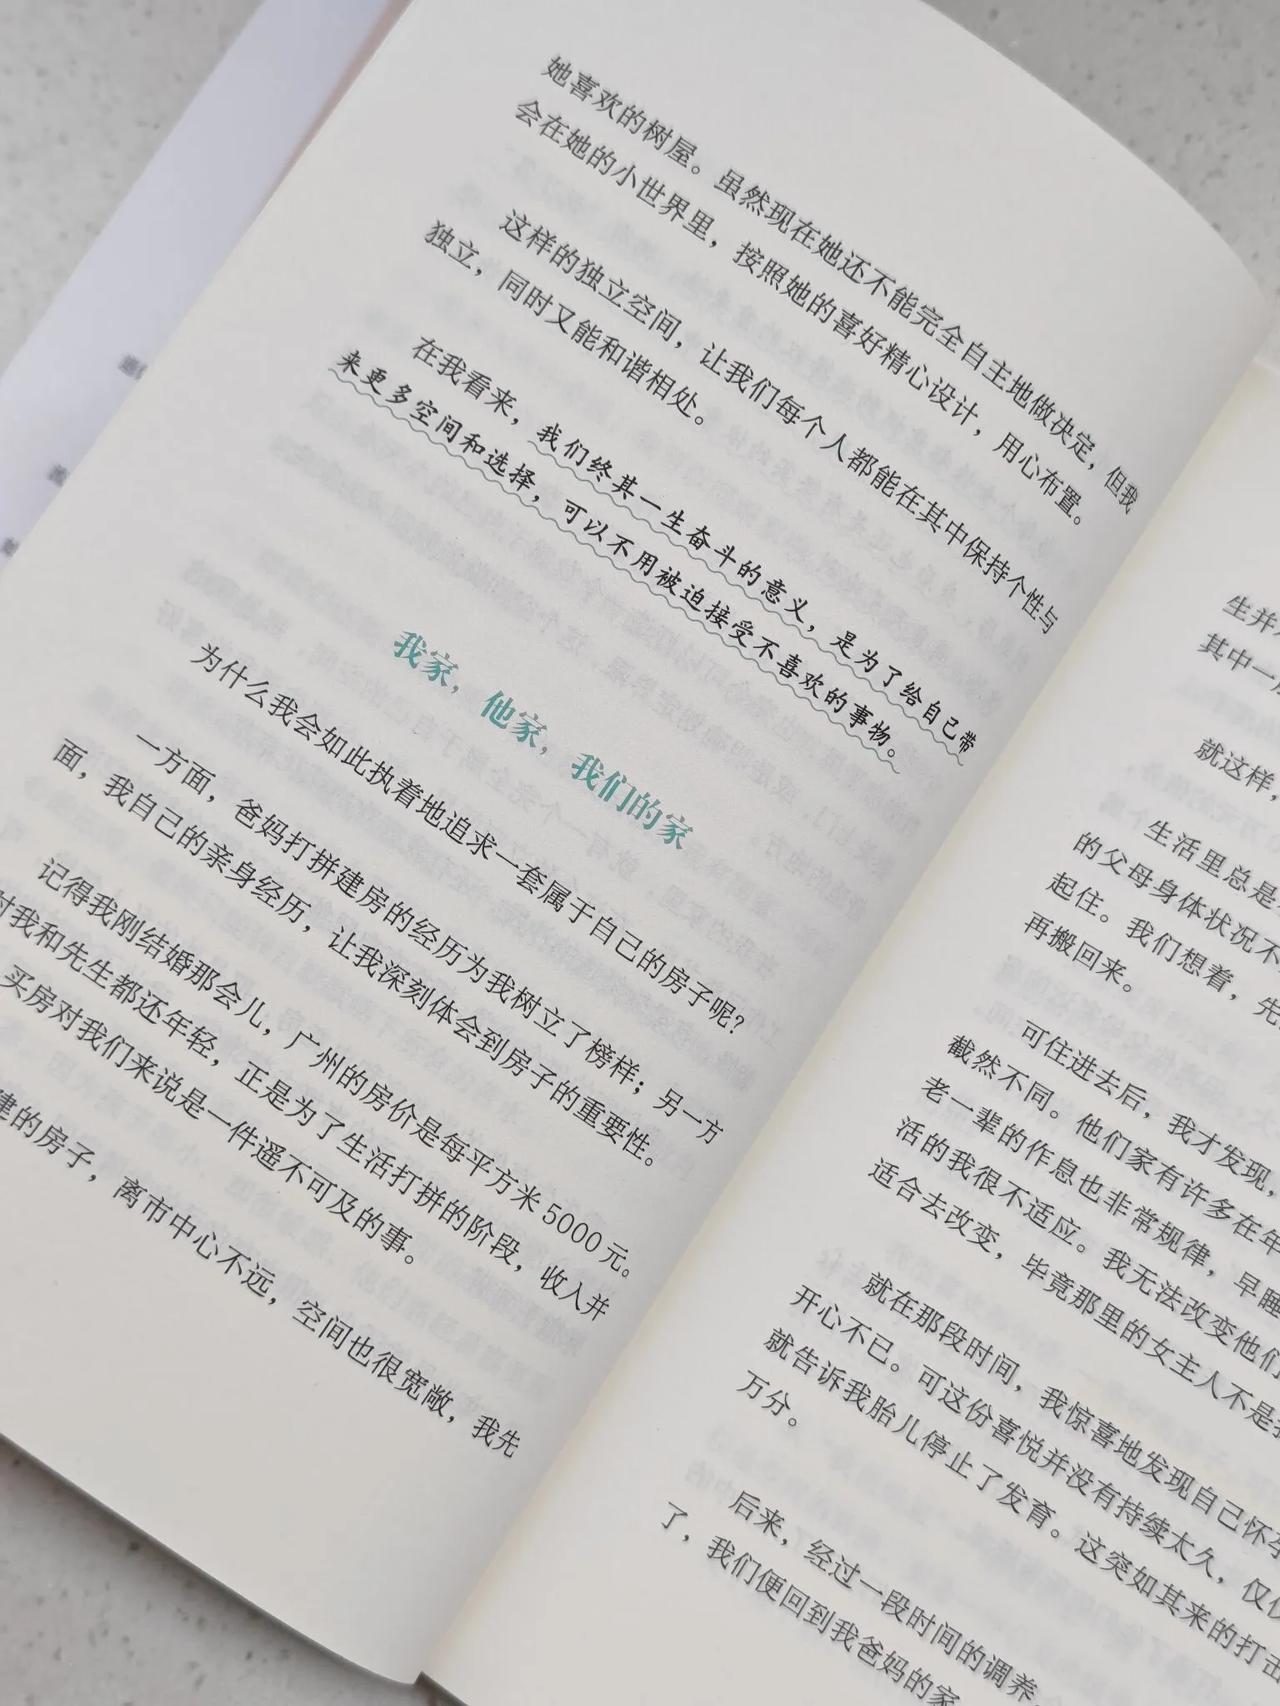 她喜欢的树屋。虽然现在她还不能完全自主地做决定，但我
会在她的小世界里，按照她的喜好精心设计，用心布置。
这样的独立空间，让我们每个人都能在其中保持个性与
独立，同时又能和谐相处。
在我看来，我们终其一生奋斗的意义，是为了给自己带
来更多空间和选择，可以不用被迫接受不喜欢的事物。
我家，他家，我们的家
为什么我会如此执着地追求一套属于自己的房子呢？
一方面，爸妈打拼建房的经历为我树立了榜样；另一方
面，我自己的亲身经历，让我深刻体会到房子的重要性。
记得我刚结婚那会儿，广州的房价是每平方米5000元。
对我和先生都还年轻，正是为了生活打拼的阶段，收入并
买房对我们来说是一件遥不可及的事。
建的房子，离市中心不远，空间也很宽敞，我先
生并
其中一
就这样，
生活里总是
的父母身体状况不
起住。我们想着，先
再搬回来。
可住进去后，我才发现，
截然不同。他们家有许多在年
老一辈的作息也非常规律，早睡
活的我很不适应。我无法改变他们
适合去改变，毕竟那里的女主人不是
就在那段时间，我惊喜地发现自己怀孕
开心不已。可这份喜悦并没有持续太久，仅
就告诉我胎儿停止了发育。这突如其来的打击
万分。
后来，经过一段时间的调养
了，我们便回到我爸妈的家